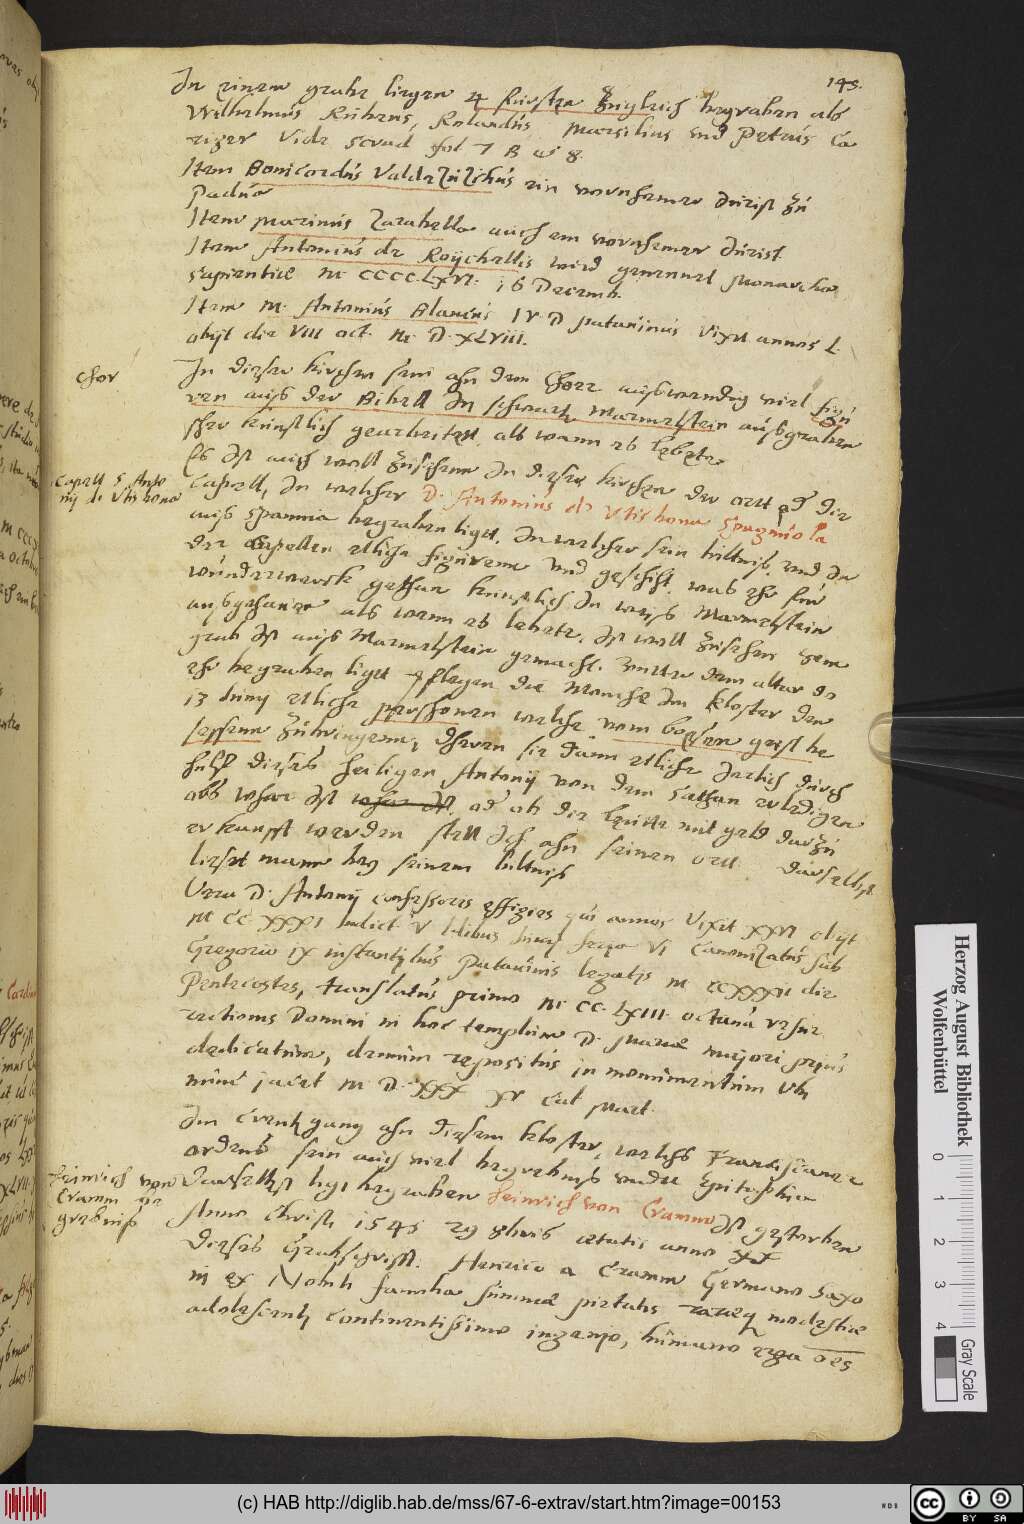 145.
In einem grabe liegen 4 fürsten zugleich begraben als
Wilhelmus Rubeus, Rolandus, Marsilius und Petrus Ca
riger Vide scrad fol 7 B et 8.
Item Bonicordus Valdezuchus ein vornhemer Jurist zu
Padua
Item Marinus Zarabella auch ein vornhemer Jurist
Item Antonius de Roychellis wird genennet Monarcha
sapientiæ M CCCC. LXVI. 16 Decemb.
Item M. Antonius Blancus IV. D patauinus Vixit annos L.
obijt die VIII oct. M. D. XLVIII.
Chor
In dieser kirchen sein ahn dem Chore auswendig viel figu
ren aus der Bibell In schwartz Marmelstein ausgraben
sehr künstlich gearbeitet, als wann es lebete
Capell S. Anto
nij de Vlisbona
Es Ist auch woll zusehenn In dieser kirchen der ort od die
Capell, In welcher D. Antonius de Vlisbona Spagniola
aus Spannia begraben ligtt. In welcher sein biltnis, und In
der Capellen etliche figurenn und geschicht, was ehr fur
wunderwerck gethan kunstlich In weiss Marmelstein
ausgehauen als wenn es lebete, Ist woll zusehen, sein
grab Ist aus Marmelstein gemacht. Unter dem altar do
ehr begraben ligtt pflegen die Monche Im kloster den
13 Junij etliche personen welche vom bosen geist be
sessenn zubringenn, dheren sie dann etliche Jerlich durch
hulf dieses heiligen Antonij von dem Sathan erledigen
obs whar Ist whar Ist, od ob die leutte mit geld darzu
erkaufft werden stell Ich ahn seinen ort. Daselbst
lieset mann bey seinem biltnis
Vera D. Antonij confessoris effigies qui annos Vixit XXXVI obijt
M CC XXXI Indict V Idibus Junij feria VI Canonizatus sub
Gregorio IX instantibus Patauinis legatis M CCXXXII die
Pentecostes, translatus primo M CC LXIII. octaua resur
rectionis Domini in hoc templum D. Mariæ majori prius
dedicatum, demum repositus in monumentum Vbi
nunc jacet M. D. XXX XV Cal Mart.
Im Creutzgang ahn diesem kloster, welchs Franciscaner
ordens sein auch viel begrebnis undtt Epitaphia
Heinrich von
Cramm sein
grebnis
Daselbst ligt begraben Heinrich von Cramm Ist gestorben
Anno Christi 1545 29 8bris ætatis anno XX
Dieses Grabschrifft. Henrico a Cramm Germano Saxo
ni ex Nobili familia summæ pietatis raræq modestiæ
adolescenti continentissimo ingenio, humano erga oes
Herzog August Bibliothek
Wolfenbüttel
0 1 2 3 4
Gray Scale
(c) HAB http://diglib.hab.de/mss/67-6-extrav/start.htm?image=00153
WDB
cc BY SA